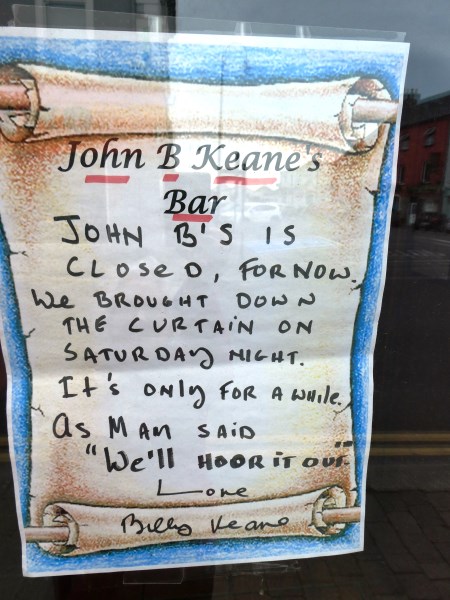 John B Keane's
Bar
JOHN B'S IS
CLOSED, FOR NOW.
We BROUGHT DOWN
THE CURTAIN ON
SATURDAY NIGHT.
It's ONLY FOR A WHILE.
As MAN SAID
"We'll HOOR IT OUT"
Love
Billy Keane